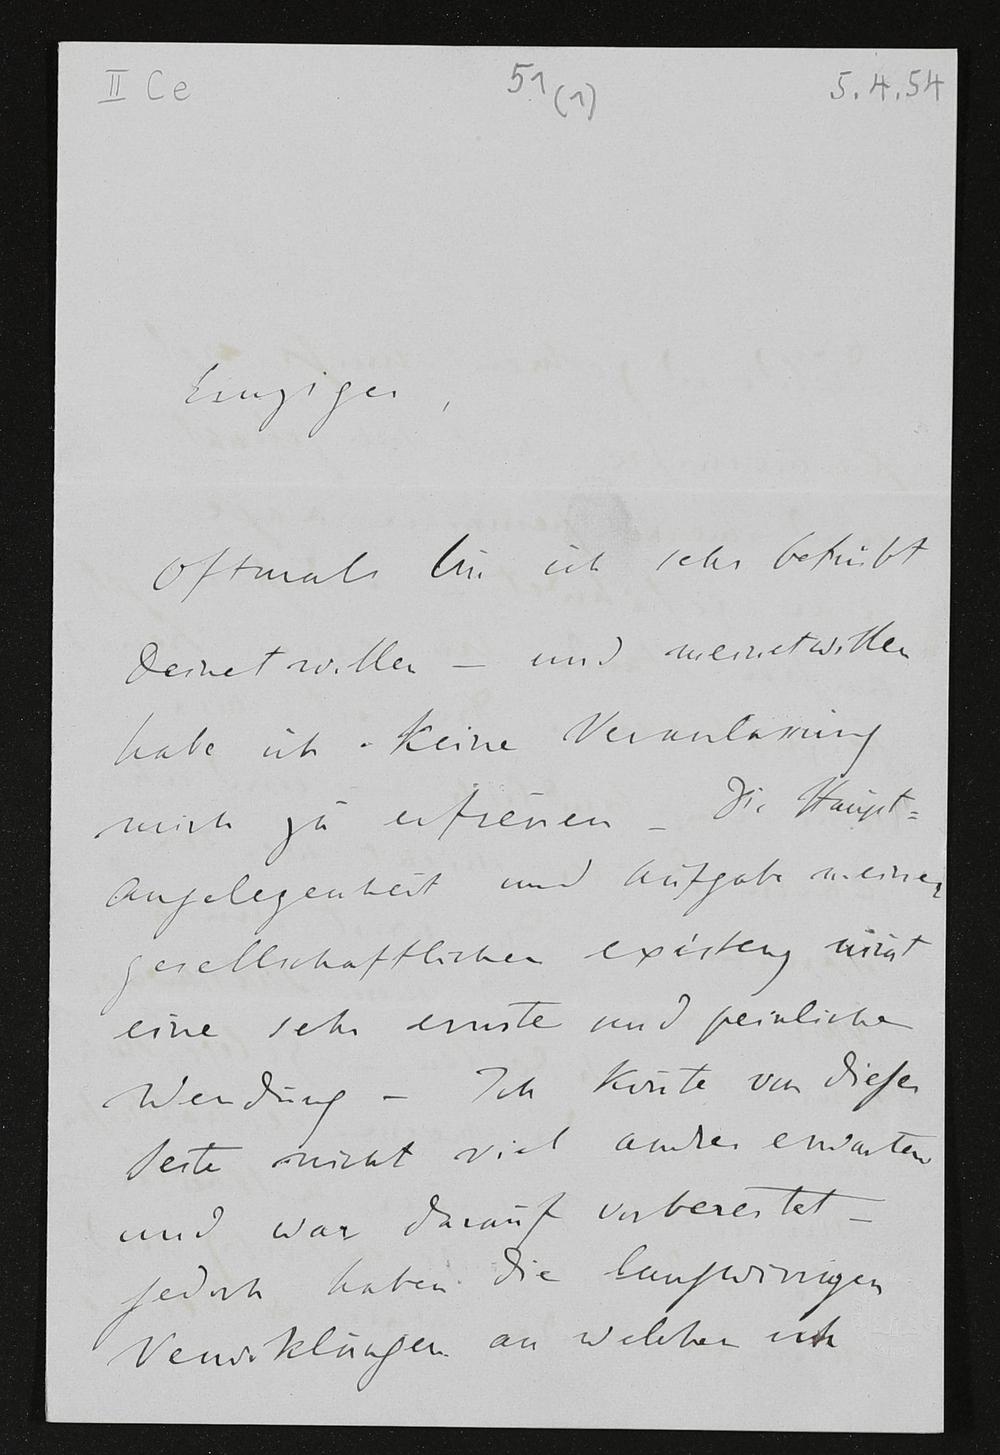 II Ce 51 (1) 5.4.54
Einziger,
Oftmals bin ich sehr betrübt
Deinetwillen – und meinetwillen
habe ich keine Veranlassung
mich zu erfreuen – Die Haupt=
angelegenheit und Aufgabe meiner
gesellschaftlichen existenz nimt
eine sehr ernste und peinliche
Wendung – Ich konte von dieser
Seite nicht viel andres erwarten
und war darauf vorbereitet –
jedoch haben die langwirrigen
Verwiklungen an welchen ich